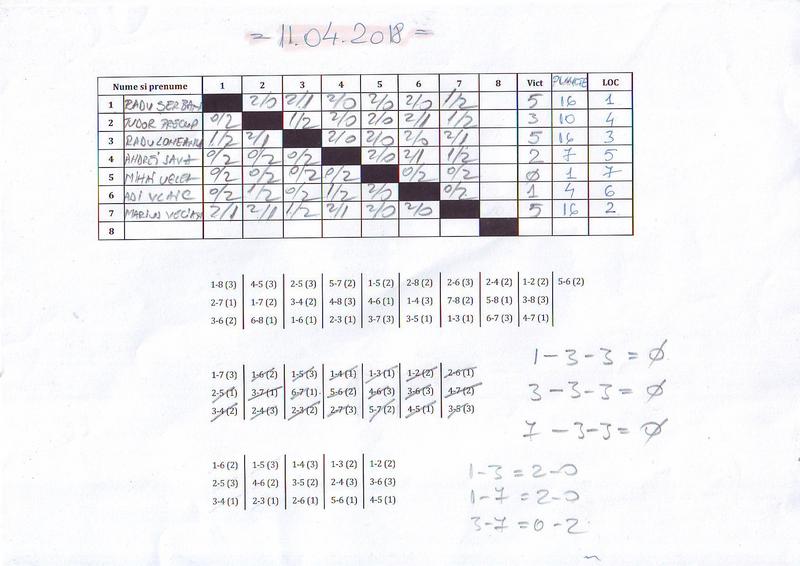 = 11.04.2018 =
Nume si prenume 1 2 3 4 5 6 7 8 Vict PUNCTE LOC
1 RADU SERBAN 2/0 2/1 2/0 2/0 2/0 1/2 5 16 1
2 TUDOR 0/2 1/2 0/2 2/0 2/1 1/2 3 10 4
3 RADU 1/2 2/1 2/0 2/0 2/0 2/1 5 16 3
4 ANDREI SAVA 0/2 0/2 0/2 2/0 2/1 1/2 2 7 5
5 MIHAI 0/2 0/2 0/2 0/2 0/2 0/2 Ø 1 7
6 ADI VLAIC 0/2 1/2 0/2 1/2 2/0 0/2 1 4 6
7 MARIUS 2/1 2/1 1/2 2/1 2/0 2/0 5 16 2
8
1-8 (3) 4-5 (3) 2-5 (3) 5-7 (2) 1-5 (2) 2-8 (2) 2-6 (3) 2-4 (2) 1-2 (2) 5-6 (2)
2-7 (1) 1-7 (2) 3-4 (2) 4-8 (3) 4-6 (1) 1-4 (3) 7-8 (2) 5-8 (1) 3-8 (3)
3-6 (2) 6-8 (1) 1-6 (1) 2-3 (1) 3-7 (3) 3-5 (1) 1-3 (1) 6-7 (3) 4-7 (1)
1-7 (3) 1-6 (2) 1-5 (3) 1-4 (1) 1-3 (1) 1-2 (2) 2-6 (1)
2-5 (1) 3-7 (1) 6-7 (1) 5-6 (2) 4-6 (3) 3-6 (3) 4-7 (2)
3-4 (2) 2-4 (3) 2-3 (2) 2-7 (3) 5-7 (2) 4-5 (1) 3-5 (3)
1-3-3=Ø
3-3-3=Ø
7-3-3=Ø
1-6 (2) 1-5 (3) 1-4 (3) 1-3 (2) 1-2 (2)
2-5 (3) 4-6 (2) 3-5 (2) 2-4 (3) 3-6 (3)
3-4 (1) 2-3 (1) 2-6 (1) 5-6 (1) 4-5 (1)
1-3=2-0
1-7=2-0
3-7=0-2